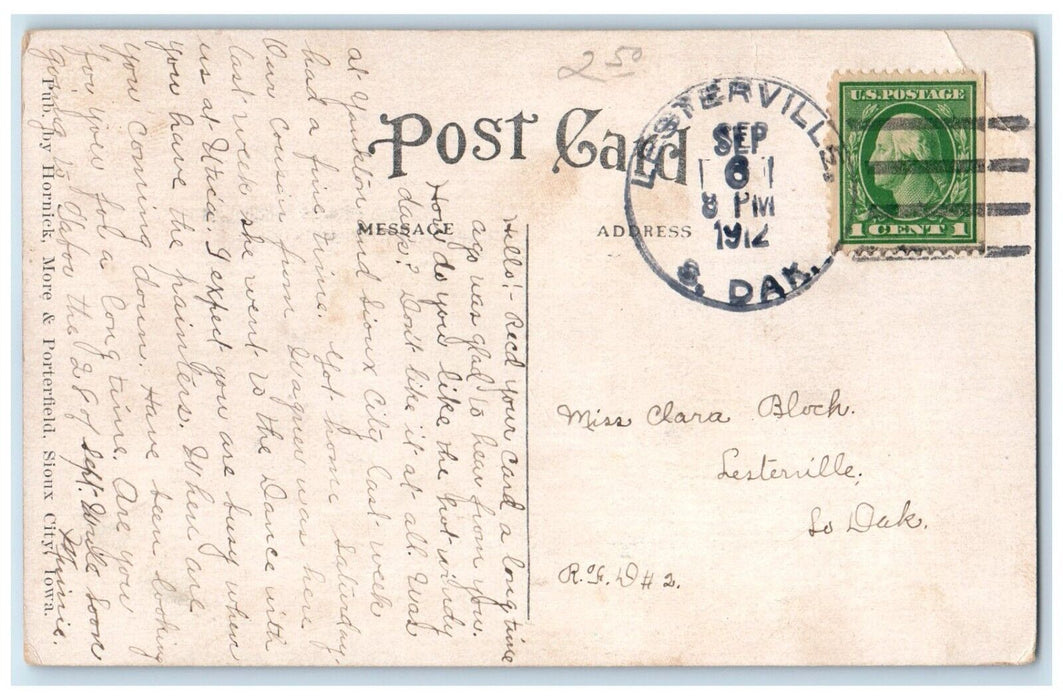 2 50
POST CARD
MESSAGE
ADDRESS
LESTERVILLE,
SEP
6
8 PM
1912
S. DAK.
U.S. POSTAGE
1 CENT 1
Miss Clara Bloch.
Lesterville,
So Dak.
R.F.D # 2.
Hello!- Recd your card a long time
ago was glad to hear from you.
How do you like the hot windy
days? Don't like it at all. Was
at Yankton and Sioux City last week
had a fine time. Got home Saturday.
Our cousin from Wagner was here
last week she went to the Dance with
us at Utica. I expect you are busy when
you have the painters. When are
you coming down. Have been looking
for you for a long time. Are you
going to Tabor the 28 of Sept. Write soon
Pub. by Hornick, More & Porterfield, Sioux City, Iowa.